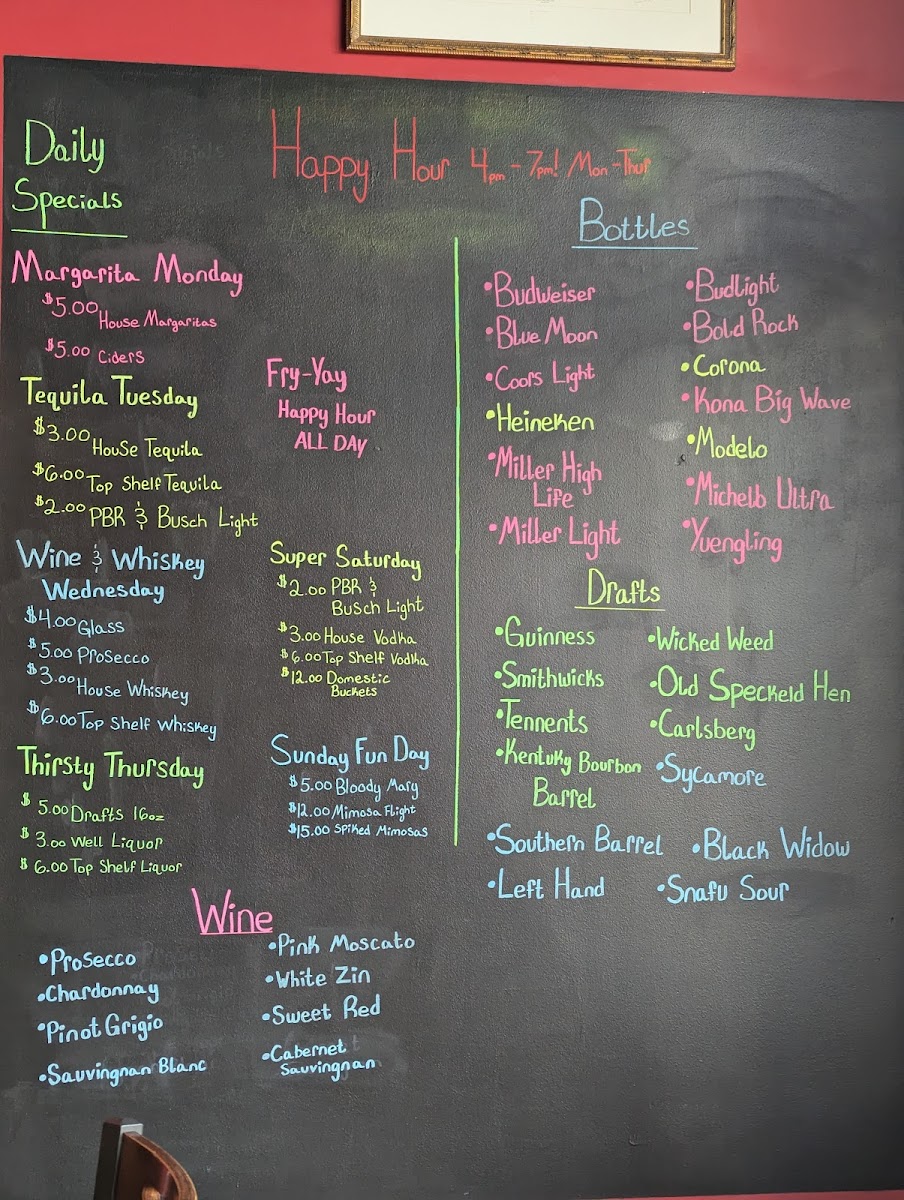 Daily
Specials
Happy Hour 4pm-7pm! Mon-Thur
Margarita Monday
$5.00 House Margaritas
$5.00 Ciders
Tequila Tuesday
$3.00 House Tequila
$6.00 Top Shelf Tequila
$2.00 PBR & Busch Light
Wine & Whiskey
Wednesday
$4.00 Glass
$5.00 Prosecco
$3.00 House Whiskey
$6.00 Top Shelf Whiskey
Thirsty Thursday
$5.00 Drafts 16oz
$3.00 Well Liquor
$6.00 Top Shelf Liquor
Fry-Yay
Happy Hour
ALL DAY
Super Saturday
$2.00 PBR &
Busch Light
$3.00 House Vodka
$6.00 Top Shelf Vodka
$12.00 Domestic
Buckets
Sunday Fun Day
$5.00 Bloody Mary
$12.00 Mimosa Flight
$15.00 Spiked Mimosas
Wine
•Prosecco
•Chardonnay
•Pinot Grigio
•Sauvingnan Blanc
•Pink Moscato
•White Zin
•Sweet Red
•Cabernet
Sauvingnan
Bottles
•Budweiser
•Blue Moon
•Coors Light
•Heineken
•Miller High
Life
•Miller Light
•Budlight
•Bold Rock
•Corona
•Kona Big Wave
•Modelo
•Michelb Ultra
•Yuengling
Drafts
•Guinness
•Smithwicks
•Tennents
•Kentuky Bourbon
Barrel
•Wicked Weed
•Old Speckeld Hen
•Carlsberg
•Sycamore
•Southern Barrel
•Black Widow
•Left Hand
•Snafu Sour